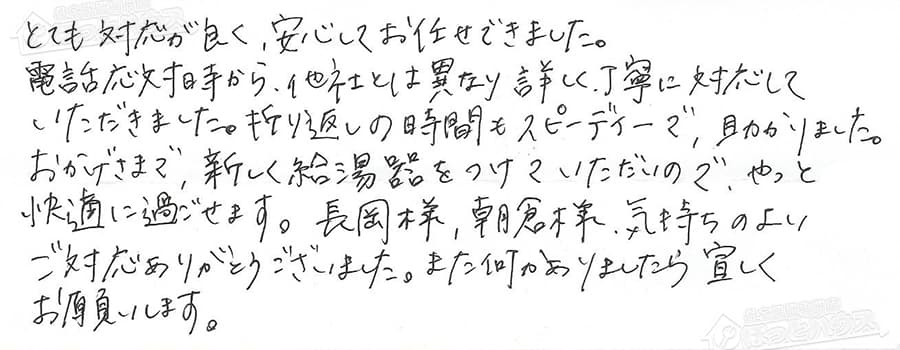 とても対応が良く、安心してお任せできました。
電話応対時から、他社とは異なり詳しく、丁寧に対応して
いただきました。折り返しの時間もスピーディーで、助かりました。
おかげさまで、新しく給湯器をつけていただいので、やっと
快適に過ごせます。長岡様、朝倉様、気持ちのよい
ご対応ありがとうございました。また何かありましたら宜しく
お願いします。